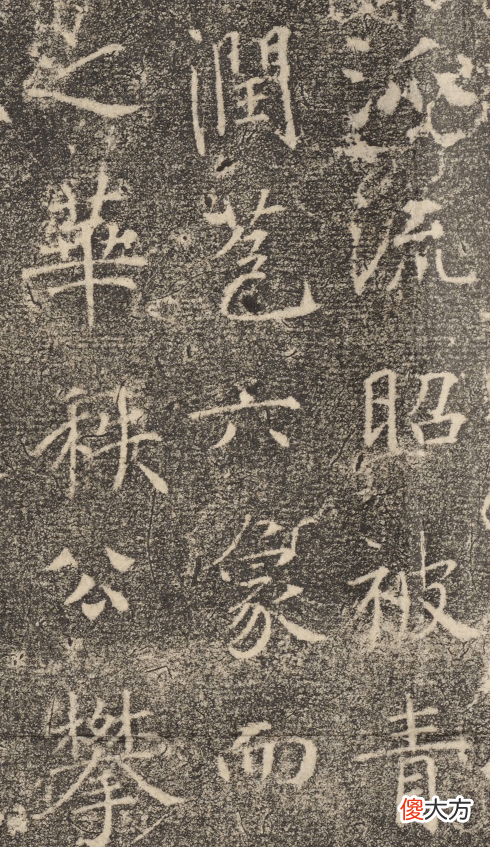 流昭被青
潤苞六象而
之華秩公攀
傻大方